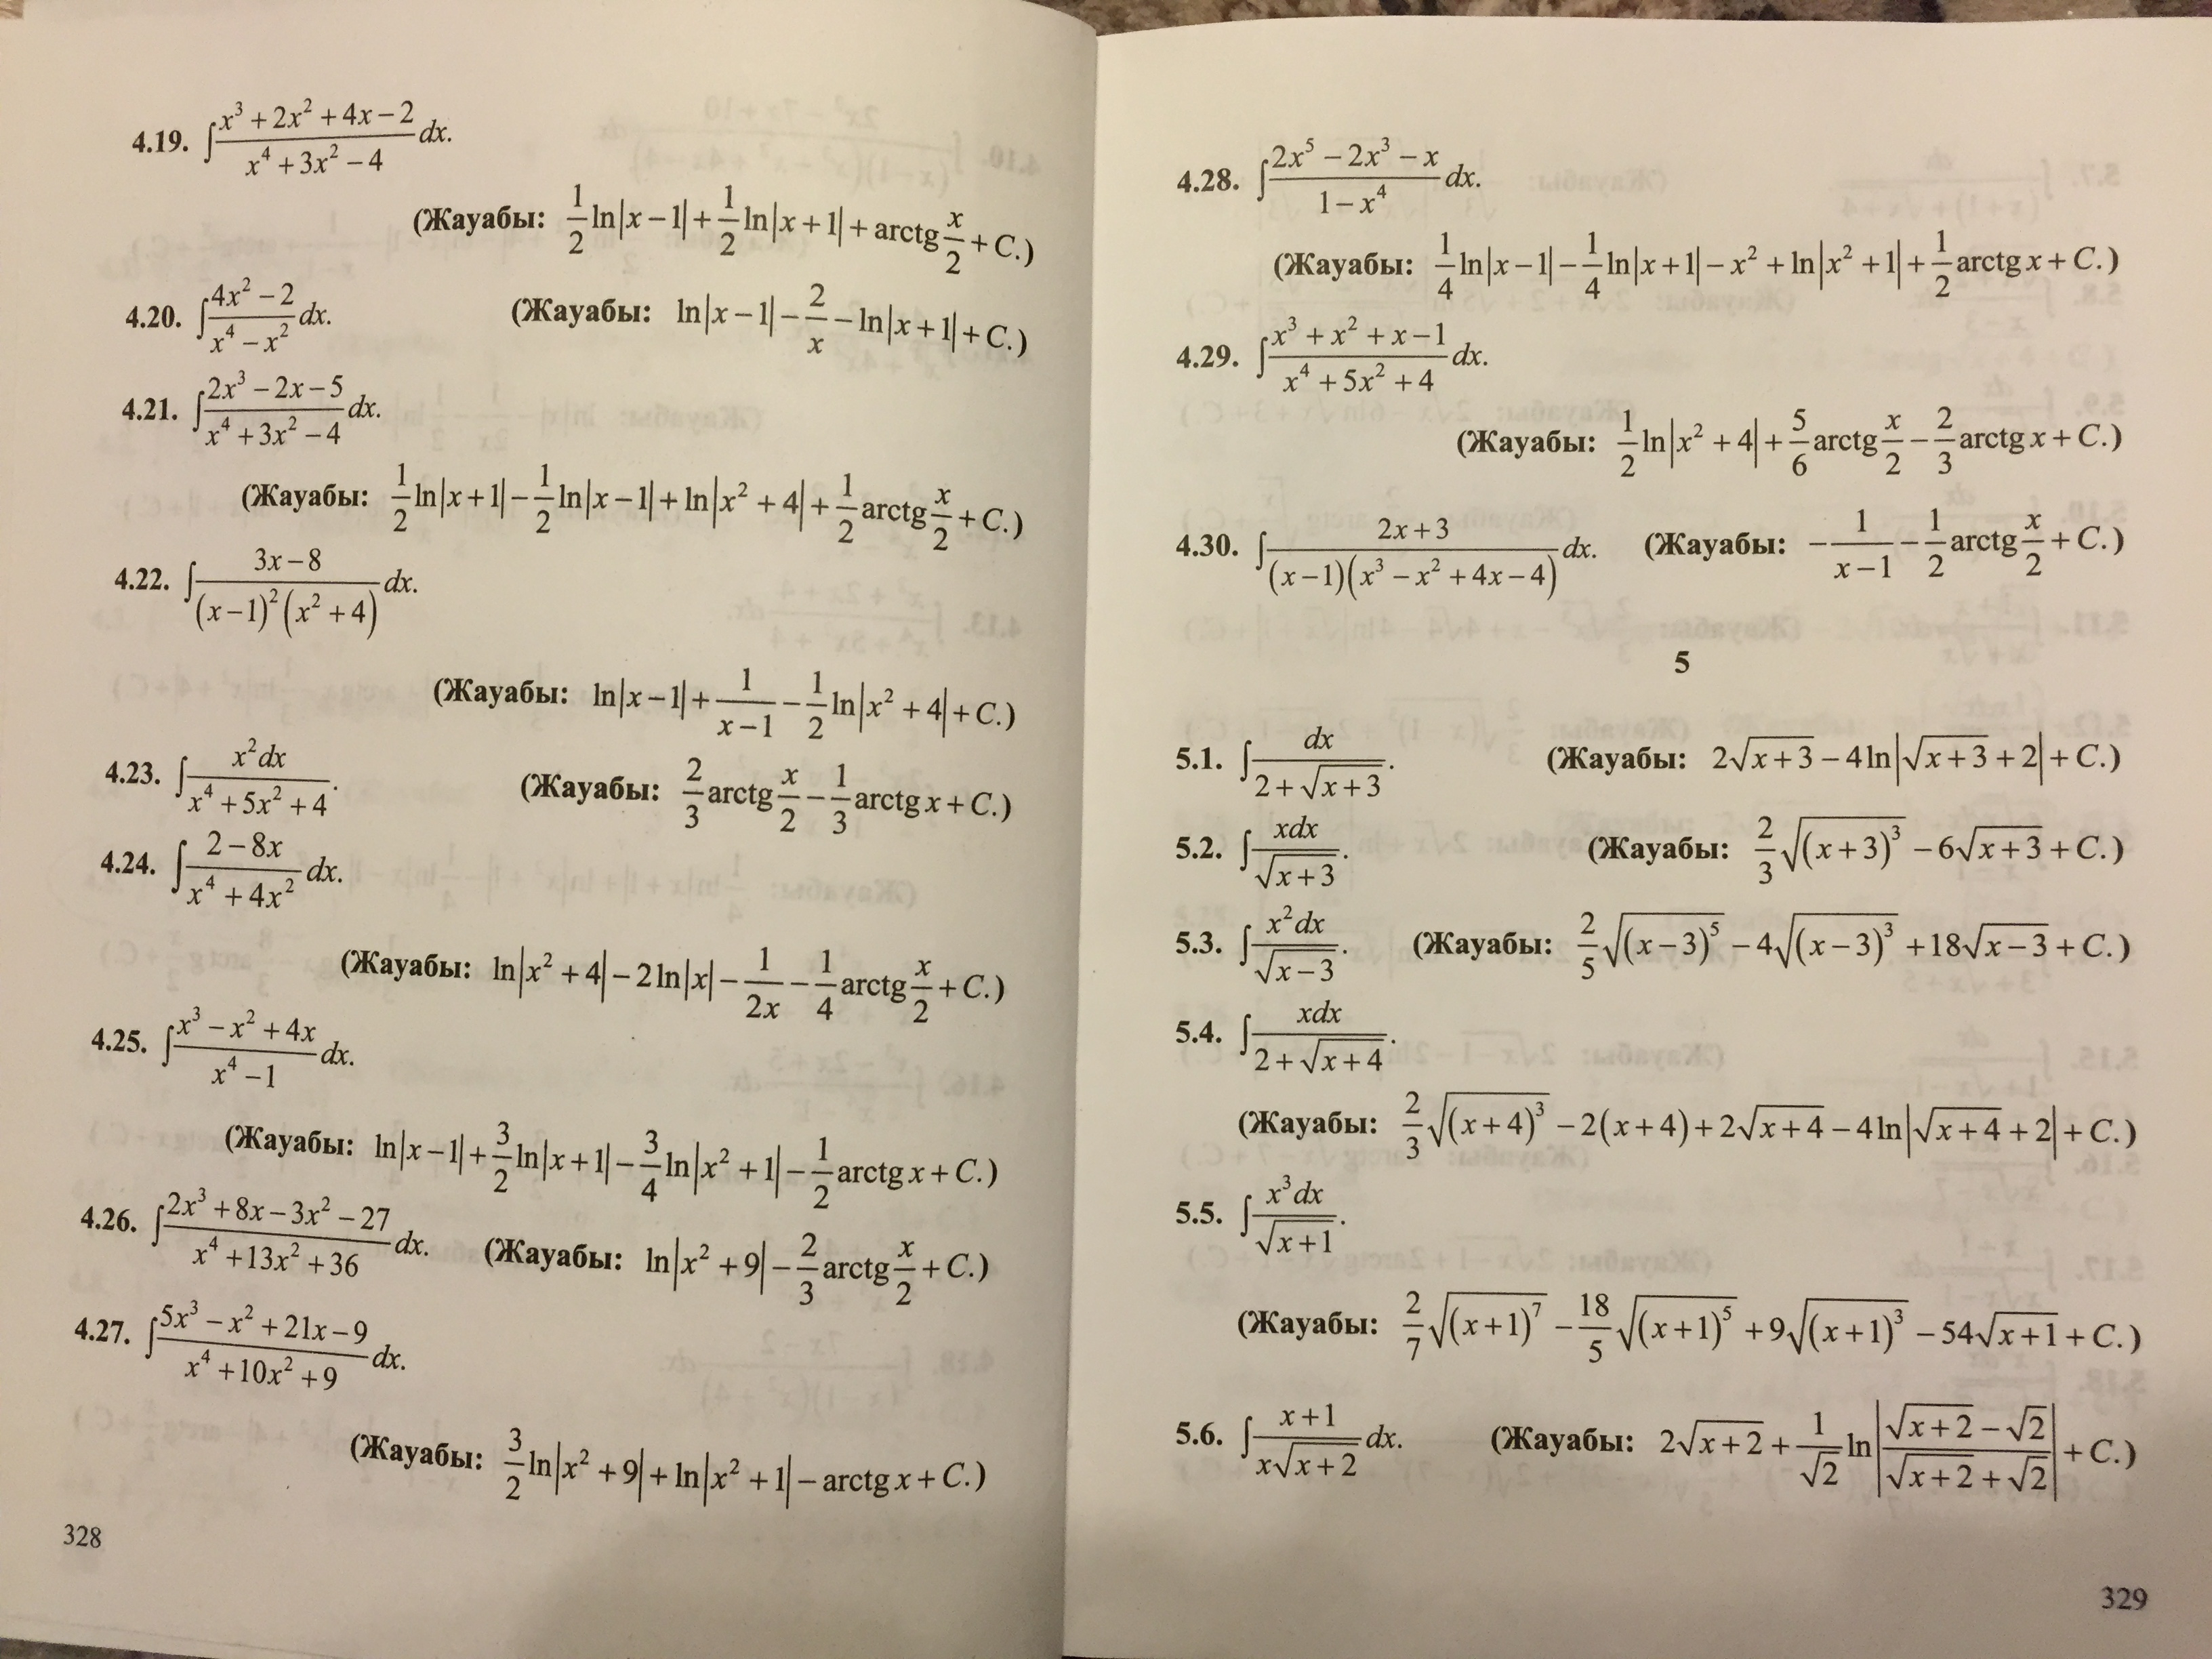 4.19. ∫ (x³ + 2x² + 4x − 2)/(x⁴ + 3x² − 4) dx.
(Жауабы: 1/2 ln|x − 1| + 1/2 ln|x + 1| + arctg x/2 + C.)
4.20. ∫ (4x² − 2)/(x⁴ − x²) dx. (Жауабы: ln|x − 1| − 2/x − ln|x + 1| + C.)
4.21. ∫ (2x³ − 2x − 5)/(x⁴ + 3x² − 4) dx.
(Жауабы: 1/2 ln|x + 1| − 1/2 ln|x − 1| + ln|x² + 4| + 1/2 arctg x/2 + C.)
4.22. ∫ (3x − 8)/((x − 1)²(x² + 4)) dx.
(Жауабы: ln|x − 1| + 1/(x − 1) − 1/2 ln|x² + 4| + C.)
4.23. ∫ x²dx/(x⁴ + 5x² + 4). (Жауабы: 2/3 arctg x/2 − 1/3 arctg x + C.)
4.24. ∫ (2 − 8x)/(x⁴ + 4x²) dx.
(Жауабы: ln|x² + 4| − 2 ln|x| − 1/(2x) − 1/4 arctg x/2 + C.)
4.25. ∫ (x³ − x² + 4x)/(x⁴ − 1) dx.
(Жауабы: ln|x − 1| + 3/2 ln|x + 1| − 3/4 ln|x² + 1| − 1/2 arctg x + C.)
4.26. ∫ (2x³ + 8x − 3x² − 27)/(x⁴ + 13x² + 36) dx. (Жауабы: ln|x² + 9| − 2/3 arctg x/2 + C.)
4.27. ∫ (5x³ − x² + 21x − 9)/(x⁴ + 10x² + 9) dx.
(Жауабы: 3/2 ln|x² + 9| + ln|x² + 1| − arctg x + C.)
328
4.28. ∫ (2x⁵ − 2x³ − x)/(1 − x⁴) dx.
(Жауабы: 1/4 ln|x − 1| − 1/4 ln|x + 1| − x² + ln|x² + 1| + 1/2 arctg x + C.)
4.29. ∫ (x³ + x² + x − 1)/(x⁴ + 5x² + 4) dx.
(Жауабы: 1/2 ln|x² + 4| + 5/6 arctg x/2 − 2/3 arctg x + C.)
4.30. ∫ (2x + 3)/((x − 1)(x³ − x² + 4x − 4)) dx. (Жауабы: −1/(x − 1) − 1/2 arctg x/2 + C.)
5
5.1. ∫ dx/(2 + √(x + 3)). (Жауабы: 2√(x + 3) − 4 ln|√(x + 3) + 2| + C.)
5.2. ∫ xdx/√(x + 3). (Жауабы: 2/3 √((x + 3)³) − 6√(x + 3) + C.)
5.3. ∫ x²dx/√(x − 3). (Жауабы: 2/5 √((x − 3)⁵) − 4√((x − 3)³) + 18√(x − 3) + C.)
5.4. ∫ xdx/(2 + √(x + 4)).
(Жауабы: 2/3 √((x + 4)³) − 2(x + 4) + 2√(x + 4) − 4 ln|√(x + 4) + 2| + C.)
5.5. ∫ x³dx/√(x + 1).
(Жауабы: 2/7 √((x + 1)⁷) − 18/5 √((x + 1)⁵) + 9√((x + 1)³) − 54√(x + 1) + C.)
5.6. ∫ (x + 1)/(x√(x + 2)) dx. (Жауабы: 2√(x + 2) + 1/√2 ln|(√(x + 2) − √2)/(√(x + 2) + √2)| + C.)
329